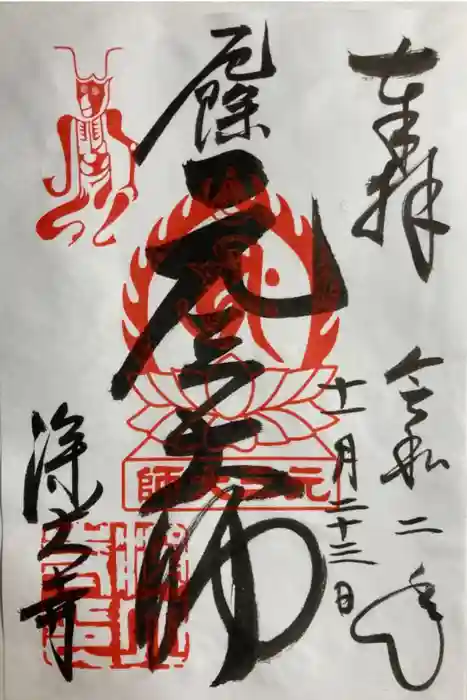 奉拝
令和二年
十一月二十三日
厄除
元三大師
元三大師
浄土寺